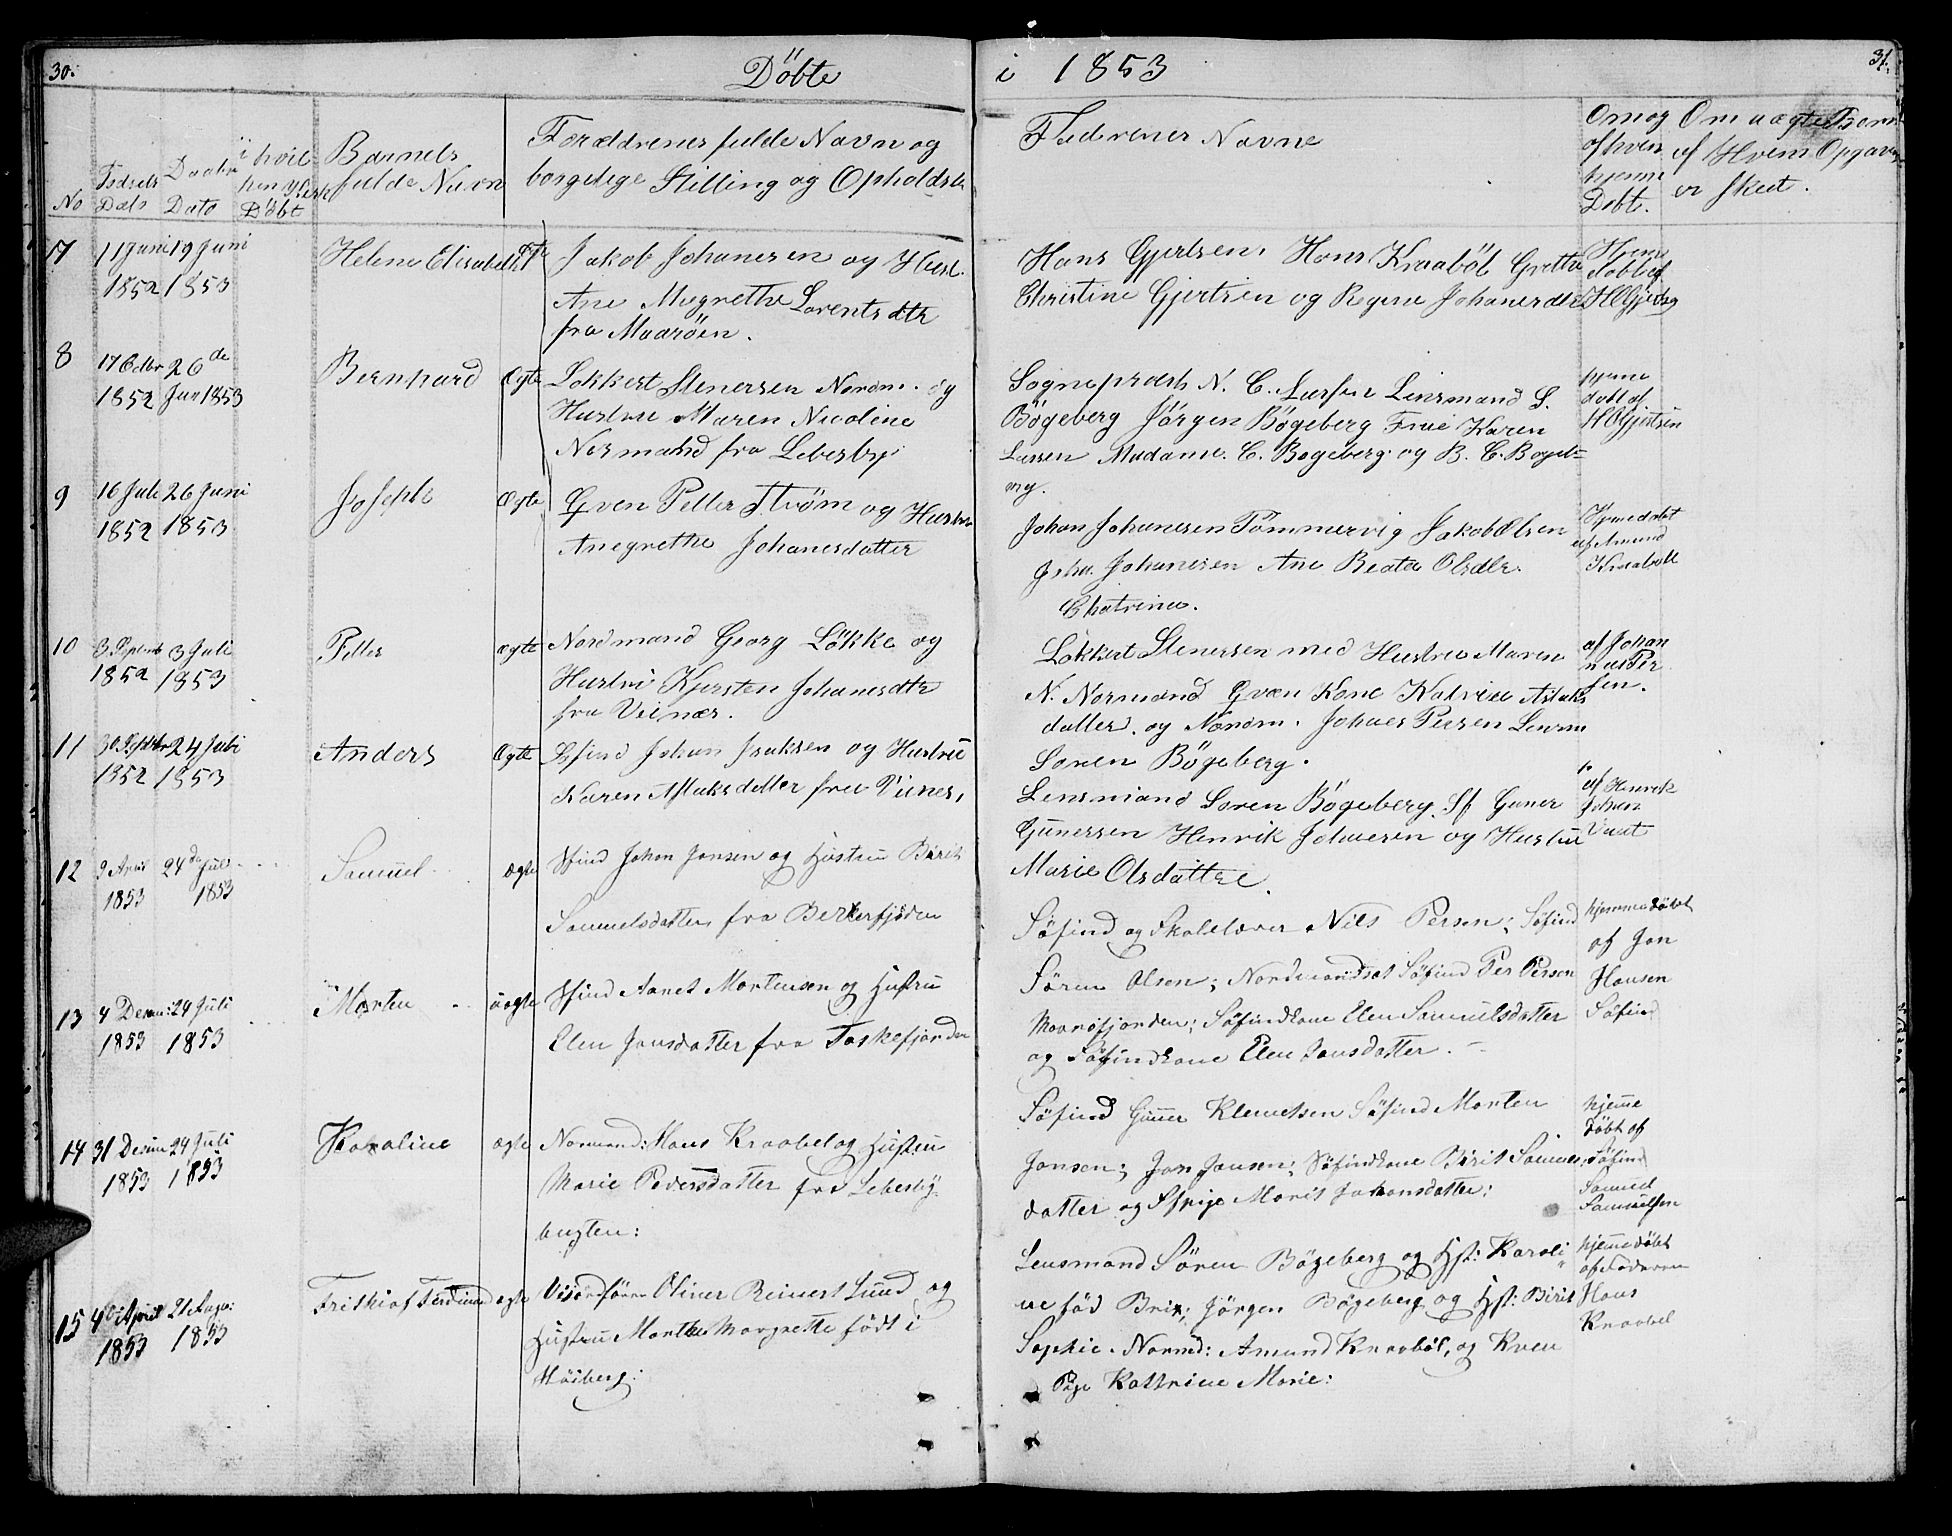 30.
Döbte
i 1853
31.
No
Födsels Dato
Daabens Dato
i hvilken Kirke Döbt
Barnets fulde Navn
Forældrenes fulde Navn og
borgelige Stilling og Opholdst.
Faderenes Navne
Om og af hvem hjemme Döbt.
Om uægte Barn
af Hvem Opgaven
er skeet.
7
11 Juni 19 Juni
1852 1853
Helene Elisabeth
ægte
Jakob Johanesen og Hust.
Ane Magrethe Lorentsdtr
fra Maaröen.
Hans Gjertsen, Hans Kraaböl Grethe
Christine Gjertsen og Regine Johanesdtr
Hjeme
Döbt af
HOGjertsen
8
17 Octbr 26de
1852 Jun 1853
Bernhard
Ægte
Lökkert Stenersen Nordm. og
Hustru Maren Nicoline
Normand fra Lebesby
Sogneprest N. C. Larsen Linsmand S.
Bögeberg Jörgen Bögeberg Frue Karen
Larsen Madame C. Bogeberg og B. C. Bogeb-
erg.
hjeme
dobt af
HOGjertsen
9
16 Juli 26 Juni
1852 1853
Joseph
Ægte
Qven Petter Ström og Hustru
Anegrethe Johanesdatter
Johan Johanesen Tömmervig Jakob Olsen
Johan Johanesen Ane Beata Olsdtr.
Chatrina.
Hjemedobt
af Amund
Kraaböll
10
3 Septemb 3 Juli
1852 1853
Petter
ægte
Nordmand Georg Lökke og
Hustru Kjersten Johanesdtr
fra Veines.
Lökkert Stenersen med Hustru Maren
N. Normand Qvæn Kone Katrine Aslaks
datter. og Nordm. Johanes Persen Lensm
Soren Bögeberg.
af Johan
nes Per
sen.
11
30 Septbr 24 Juli
1852 1853
Anders
Ægte
Söfind Johan Isaksen og Hustru
Karen Aslaksdatter fra Veines,
Lensmand Soren Bögeberg, Sf Guner
Gunersen Henrik Johanesen og Hustru
Marie Olsdatter.
af Henrik
Johan
12
9 April 24de Juli
1853 1853
Samuel
ægte
Söfind Johan Jonsen og Hustru Berit
Samuelsdatter fra Bekkerfjorden
Söfind og Skolelærer Nils Persen; Söfind
Sören Olsen; Nordmandsöt Söfind Per Persen
Maaröfjorden; Söfindkone Elen Samuelsdatter
og Söfindkone Elen Jonsdatter. -
hjemmedöbt
af Jon
Hansen
Söfind
13
4 Decem: 24 Juli
1853 1853
Morten
uægte
Söfind Anret Mortensen og Hustru
Elen Jonsdatter fra Torskefjorden
Söfind Guner Klemetsen Söfind Morten
Jonsen; Jon Jonsen; Söfindkone Birit Samuels
datter og Sfpige Marit Johansdatter;
hjeme
döbt af
Söfind
Samuel
Samuelsen
14
31 Decem 24 Juli
1853 1853
Karoline
ægte
Normand: Hans Kraabel og Hustru
Marie Pedersdatter fra Lebesby
bugten:
Lensmand Sören Bögeberg og Hst: Karoli
ne föd Brix; Jörgen Bögeberg og Hst: Birit
Sophie. Normd: Amund Kraaböl, og Kven
Pige Kattrine Marie:
hjemedöbt
af Faderen
Hans
Kraabel
15
4de April 21 Augu:
1853 1853
Frithiof Ferdinand
ægte
Oliver Reinert Lund og
Hustru Marthe Margrette födt i
Höiberg: